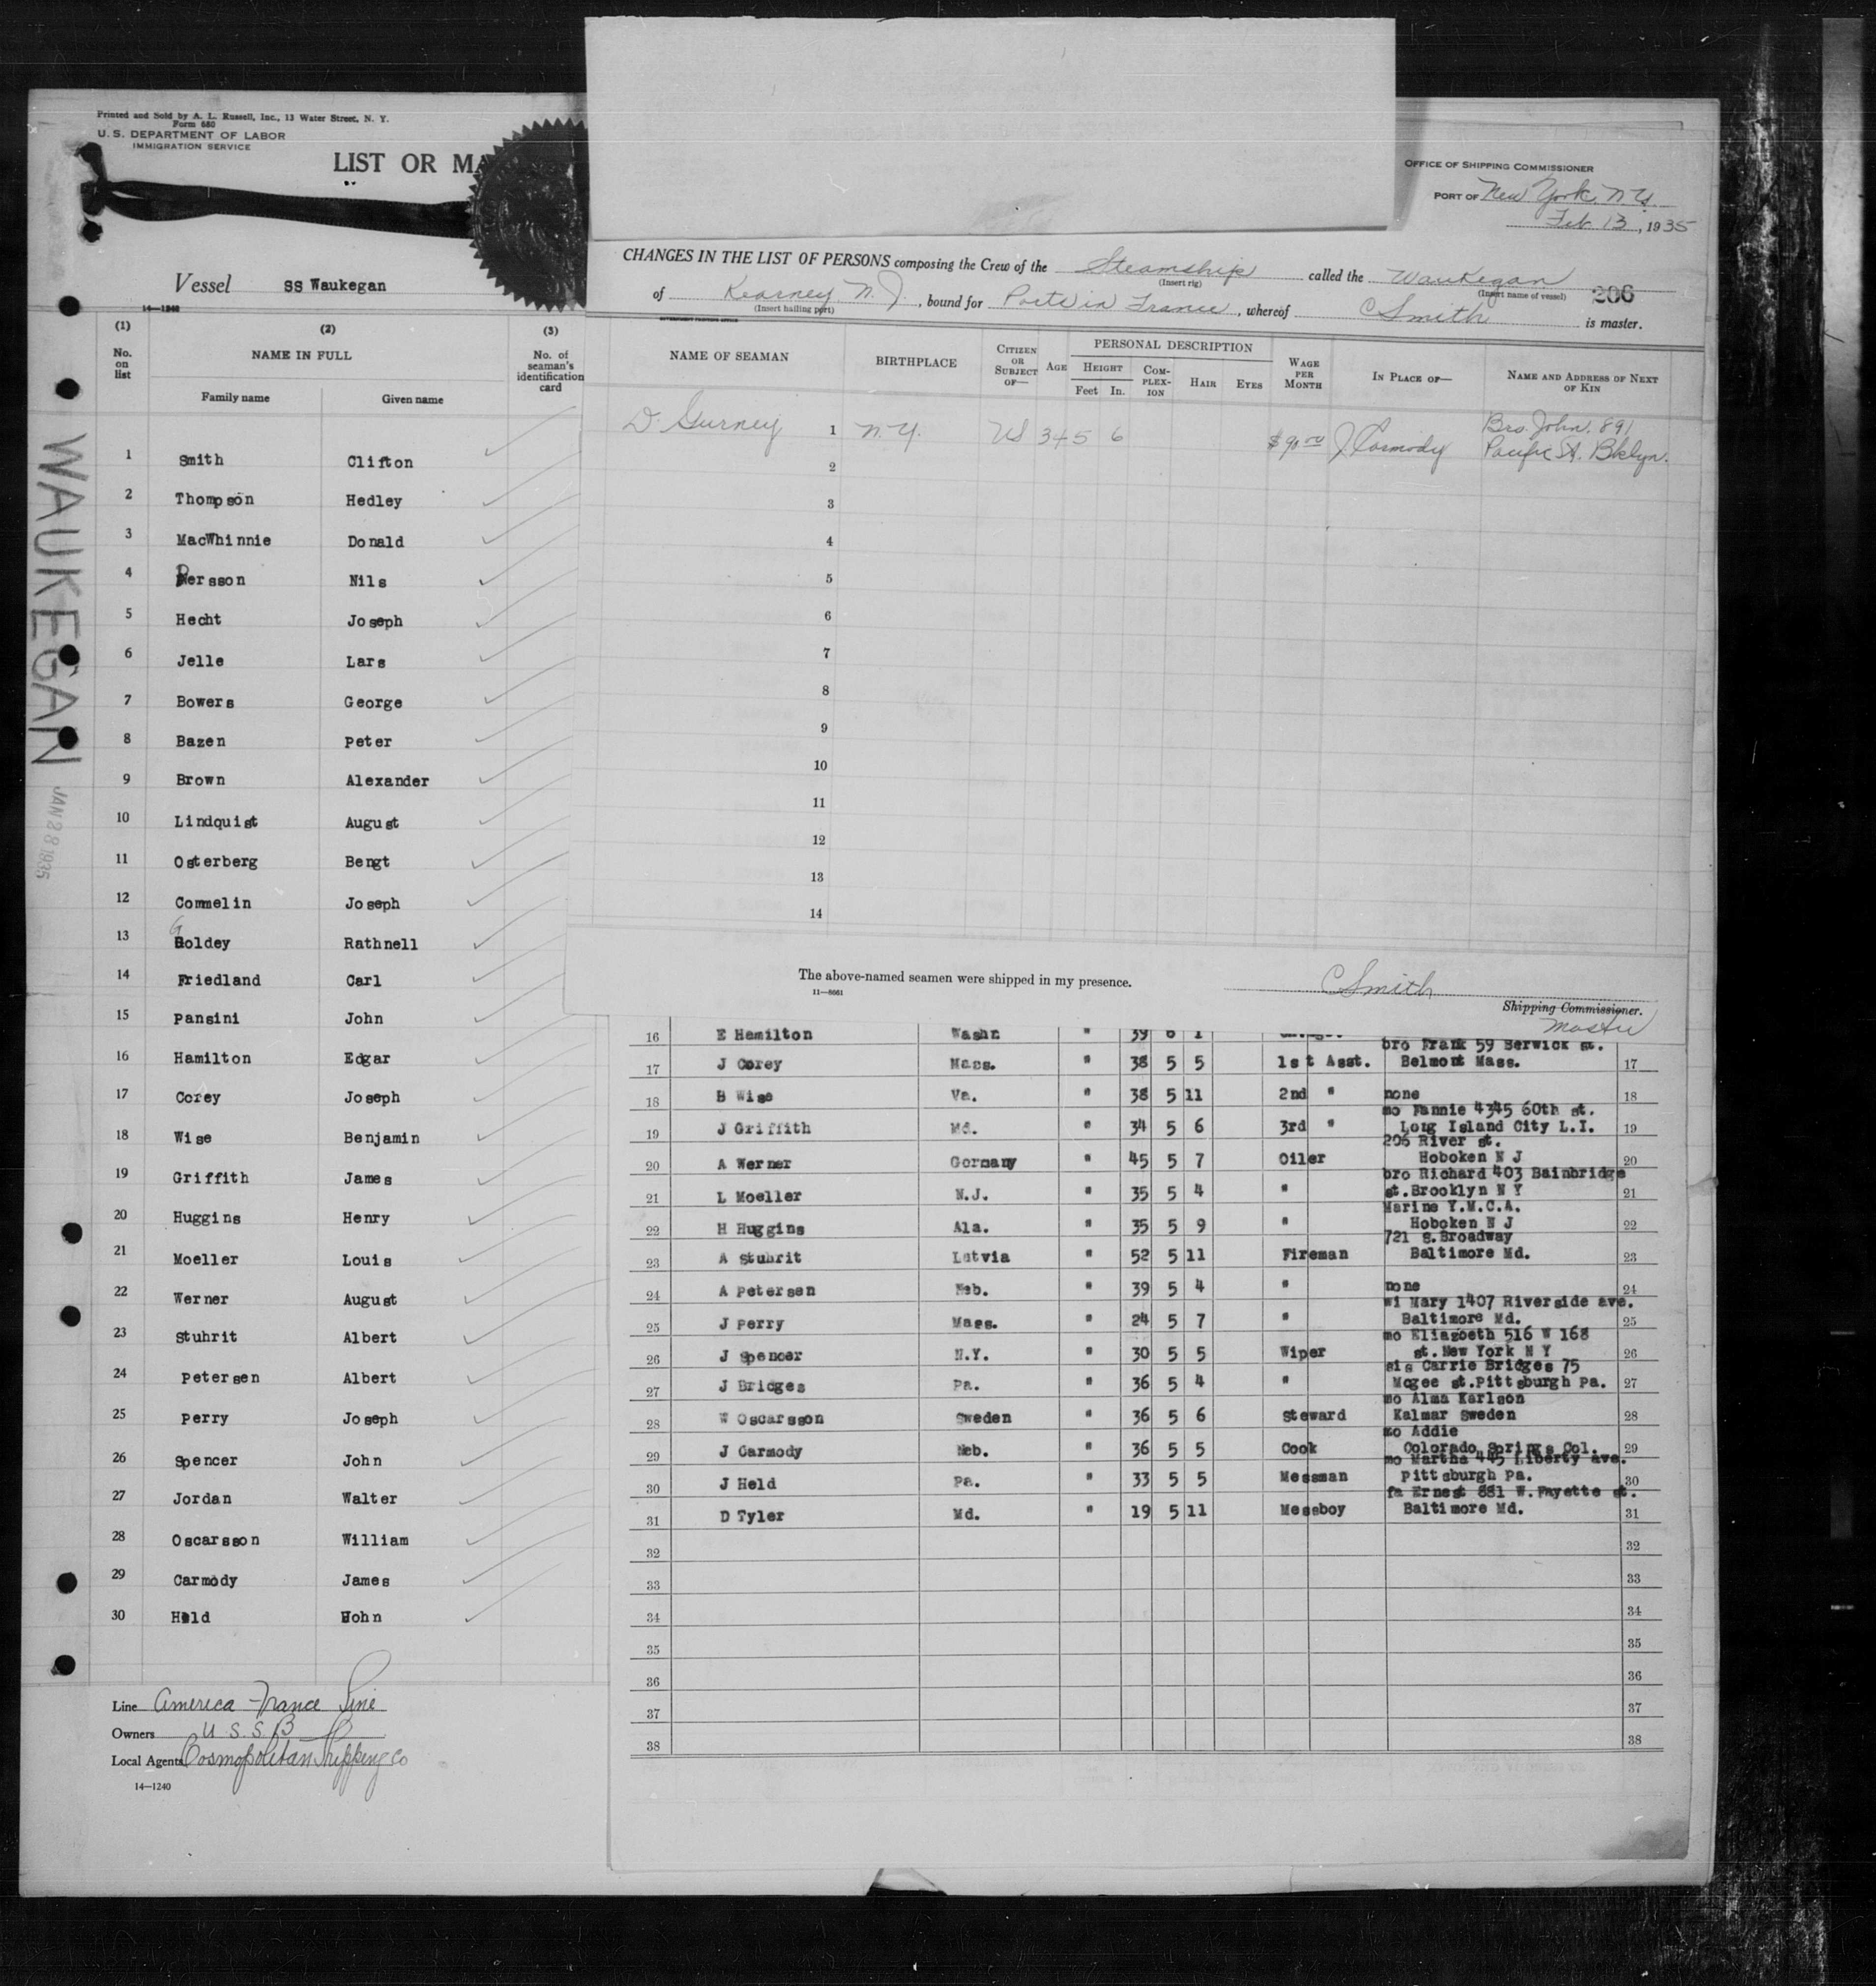 Printed and Sold by A. L. Russell, Inc., 13 Water Street, N. Y.
Form 680
U. S. DEPARTMENT OF LABOR
IMMIGRATION SERVICE
LIST OR MA
Vessel SS Waukegan
14—1240
(1) (2) (3)
No. on list
NAME IN FULL
No. of seaman's identification card
Family name Given name
1 Smith Clifton
2 Thompson Hedley
3 MacWhinnie Donald
4 Persson Nils
5 Hecht Joseph
6 Jelle Lars
7 Bowers George
8 Bazen Peter
9 Brown Alexander
10 Lindquist August
11 Osterberg Bengt
12 Commelin Joseph
13 Goldey Rathnell
14 Friedland Carl
15 Pansini John
16 Hamilton Edgar
17 Corey Joseph
18 Wise Benjamin
19 Griffith James
20 Huggins Henry
21 Moeller Louis
22 Werner August
23 Stuhrit Albert
24 Petersen Albert
25 Perry Joseph
26 Spencer John
27 Jordan Walter
28 Oscarsson William
29 Carmody James
30 Held John
Line America France Line
Owners U S. S. B
Local Agents Cosmopolitan Shipping Co
14—1240
WAUKEGAN
JAN 28 1935
OFFICE OF SHIPPING COMMISSIONER
PORT OF New York, N. Y.
Feb. 13, 1935
CHANGES IN THE LIST OF PERSONS composing the Crew of the Steamship called the Waukegan
(Insert rig) (Insert name of vessel) 206
of Kearney N. J., bound for Ports in France, whereof C Smith is master.
(Insert hailing port)
GOVERNMENT PRINTING OFFICE
NAME OF SEAMAN BIRTHPLACE CITIZEN OR SUBJECT OF— AGE PERSONAL DESCRIPTION WAGE PER MONTH IN PLACE OF— NAME AND ADDRESS OF NEXT OF KIN
HEIGHT COMPLEXION HAIR EYES
Feet In.
D. Gurney 1 N. Y. US 34 5 6 $90.00 J. Carmody Bro. John. 891
Pacific St. Bklyn.
2
3
4
5
6
7
8
9
10
11
12
13
14
The above-named seamen were shipped in my presence.
11—8661
C Smith
Shipping Commissioner.
Master
16 E Hamilton Washn " 39 6 1
bro Frank 59 Berwick st.
17 J Corey Mass. " 38 5 5 1st Asst. Belmont Mass. 17
18 B Wise Va. " 38 5 11 2nd " none 18
mo Fannie 4345 60th st.
19 J Griffith Md. " 34 5 6 3rd " Long Island City L.I. 19
206 River st.
20 A Werner Germany " 45 5 7 Oiler Hoboken N J 20
bro Richard 403 Bainbridge
21 L Moeller N.J. " 35 5 4 " st.Brooklyn N Y 21
Marine Y.M.C.A.
22 H Huggins Ala. " 35 5 9 " Hoboken N J 22
721 S.Broadway
23 A Stuhrit Latvia " 52 5 11 Fireman Baltimore Md. 23
24 A Petersen Neb. " 39 5 4 " none 24
wi Mary 1407 Riverside ave.
25 J Perry Mass. " 24 5 7 " Baltimore Md. 25
mo Eliazbeth 516 W 168
26 J Spencer N.Y. " 30 5 5 Wiper st.New York N Y 26
sis Carrie Bridges 75
27 J Bridges Pa. " 36 5 4 " Mcgee st.Pittsburgh Pa. 27
mo Alma Karlson
28 W Oscarsson Sweden " 36 5 6 Steward Kalmar Sweden 28
mo Addie
29 J Carmody Neb. " 36 5 5 Cook Colorado Springs Col. 29
mo Martha 445 Liberty ave.
30 J Held Pa. " 33 5 5 Messman Pittsburgh Pa. 30
fa Ernest 881 W.Fayette st.
31 D Tyler Md. " 19 5 11 Messboy Baltimore Md. 31
32 32
33 33
34 34
35 35
36 36
37 37
38 38